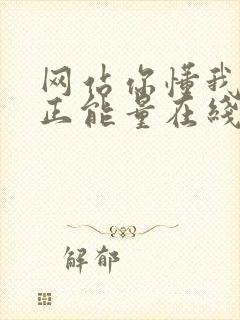 网估你懂我
正能量在线
解郁